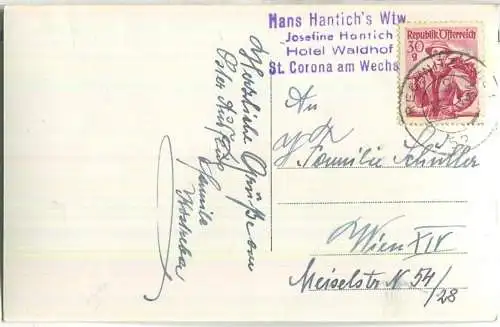 Hans Hantich's Wtw
Josefine Hantich
Hotel Waldhof
St. Corona am Wechs
Republik Österreich
30
g
Herzliche Grüße von
Familie
An
Familie Schuller
Wien XIV
Meiselstr N 54/
28